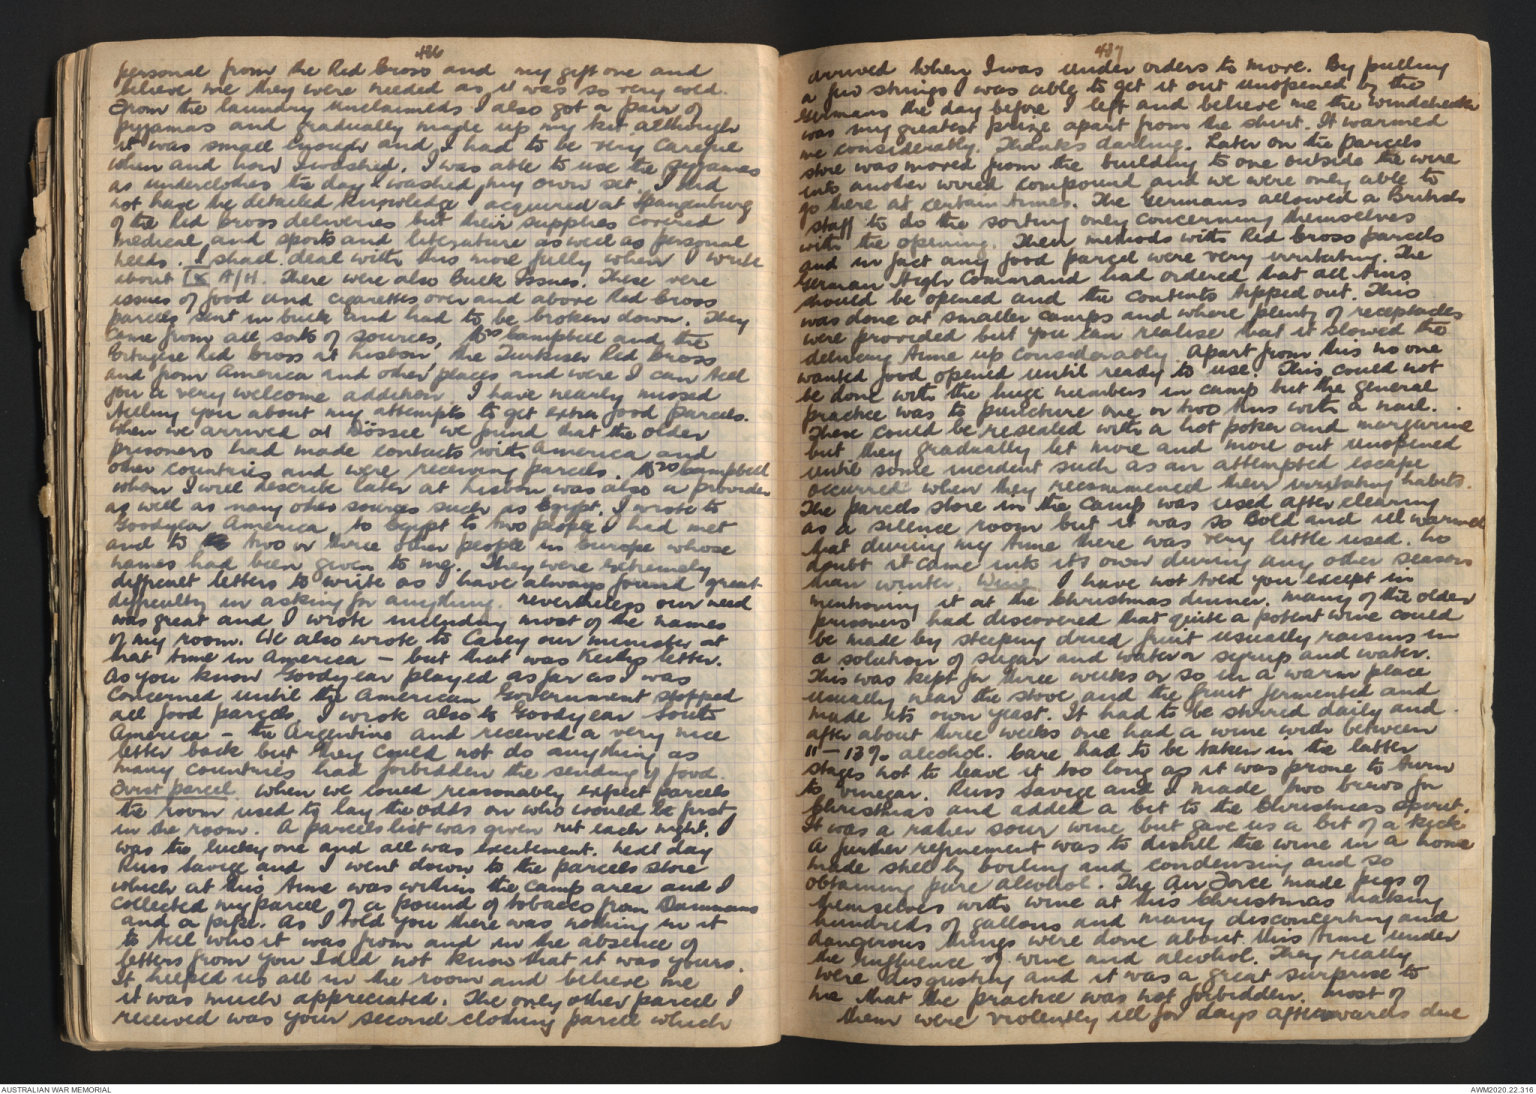 486
personal from the Red Cross and my gift one and
believe me they were needed as it was so very cold.
From the laundry unclaimeds I also got a pair of
pyjamas and gradually made up my kit although
it was small enough and I had to be very careful
when and how I washed. I was able to use the pyjamas
as underclothes the day I washed my own set. I did
not have the detailed knowledge I acquired at Spangenburg
of the Red Cross deliveries but their supplies covered
medical and sports and literature as well as personal
needs. I shall deal with this more fully when I write
about IX A/H. There were also Buck Issues. These were
issues of food and cigarettes over and above Red Cross
parcels sent in buck and had to be broken down. They
came from all sorts of sources, Mrs Campbell and the
Portugise Red Cross at Lisbon, the Turkish Red Cross
and from America and other places and were I can tell
you a very welcome addition. I have nearly missed
telling you about my attempts to get extra food parcels.
When we arrived at Dössel we found that the older
prisoners had made contacts with America and
other countries and were receiving parcels. Mrs Campbell
whom I will describe later at Lisbon was also a provider
as well as many other sources such as Egypt. I wrote to
Goodyear America, to Egypt to two people I had met
and to two or three other people in Europe whose
names had been given to me. They were extremely
difficult letters to write as I have always found great
difficulty in asking for anything. Nevertheless our need
was great and I wrote including most of the names
of my room. We also wrote to Casey our minister at
that time in America – but that was Keith's letter.
As you know Goodyear played as far as I was
concerned until the American Government stopped
all food parcels. I wrote also to Goodyear South
America – the Argentine and received a very nice
letter back but they could not do anything as
many countries had forbidden the sending of food.
First parcel. When we could reasonably expect parcels
the room used to lay the odds on who would be first
in the room. A parcels list was given out each night. I
was the lucky one and all was excitement. Next day
Russ Savige and I went down to the parcels store
which at this time was within the camp area and I
collected my parcel of a pound of tobacco from Dammans
and a pipe. As I told you there was nothing in it
to tell who it was from and in the absence of
letters from you I did not know that it was yours.
It helped us all in the room and believe me
it was much appreciated. The only other parcel I
received was your second clothing parcel which
487
arrived when I was under orders to move. By pulling
a few strings I was able to get it out unopened by the
Germans the day before I left and believe me the windcheater
was my greatest prize apart from the shirt. It warmed
me considerably. Thanks darling. Later on the parcels
store was moved from the building to one outside the wire
into another wired compound and we were only able to
go there at certain times. The Germans allowed a British
staff to do the sorting only concerning themselves
with the opening. Their methods with Red Cross parcels
and in fact any food parcel were very irritating. The
German High Command had ordered that all tins
should be opened and the contents tipped out. This
was done at smaller camps and where plenty of receptacles
were provided but you can realise that it slowed the
delivery time up considerably. Apart from this no one
wanted food opened until ready to use. This could not
be done with the huge numbers in camp but the general
practice was to puncture one or two tins with a nail.
These could be resealed with a hot poker and margarine
but they gradually let more and more out unopened
until some incident such as an attempted escape
occurred when they recommenced their irritating habits.
The parcels store in the camp was used after clearing
as a silence room but it was so cold and ill warmed
that during my time there was very little used. No
doubt it came into its own during any other season
than winter. Wine. I have not told you except in
mentioning it at the Christmas dinner. Many of the older
prisoners had discovered that quite a potent wine could
be made by steeping dried fruit usually raisins in
a solution of sugar and water or syrup and water.
This was kept for three weeks or so in a warm place
usually near the stove and the fruit fermented and
made its own yeast. It had to be stirred daily and
after about three weeks one had a wine with between
11 – 13% alcohol. Care had to be taken in the latter
stages not to leave it too long as it was prone to turn
to vinegar. Russ Savige and I made two brews for
Christmas and added a bit to the Christmas spirit.
It was a rather sour wine but gave us a bit of a kick.
A further refinement was to distill the wine in a home
made still by boiling and condensing and so
obtaining pure alcohol. The Air Force made pigs of
themselves with wine at this Christmas making
hundreds of gallons and many disconcerting and
dangerous things were done about this time under
the influence of wine and alcohol. They really
were disgusting and it was a great surprise to
me that the practice was not forbidden. Most of
them were violently ill for days afterwards due
AUSTRALIAN WAR MEMORIAL
AWM2020.22.316